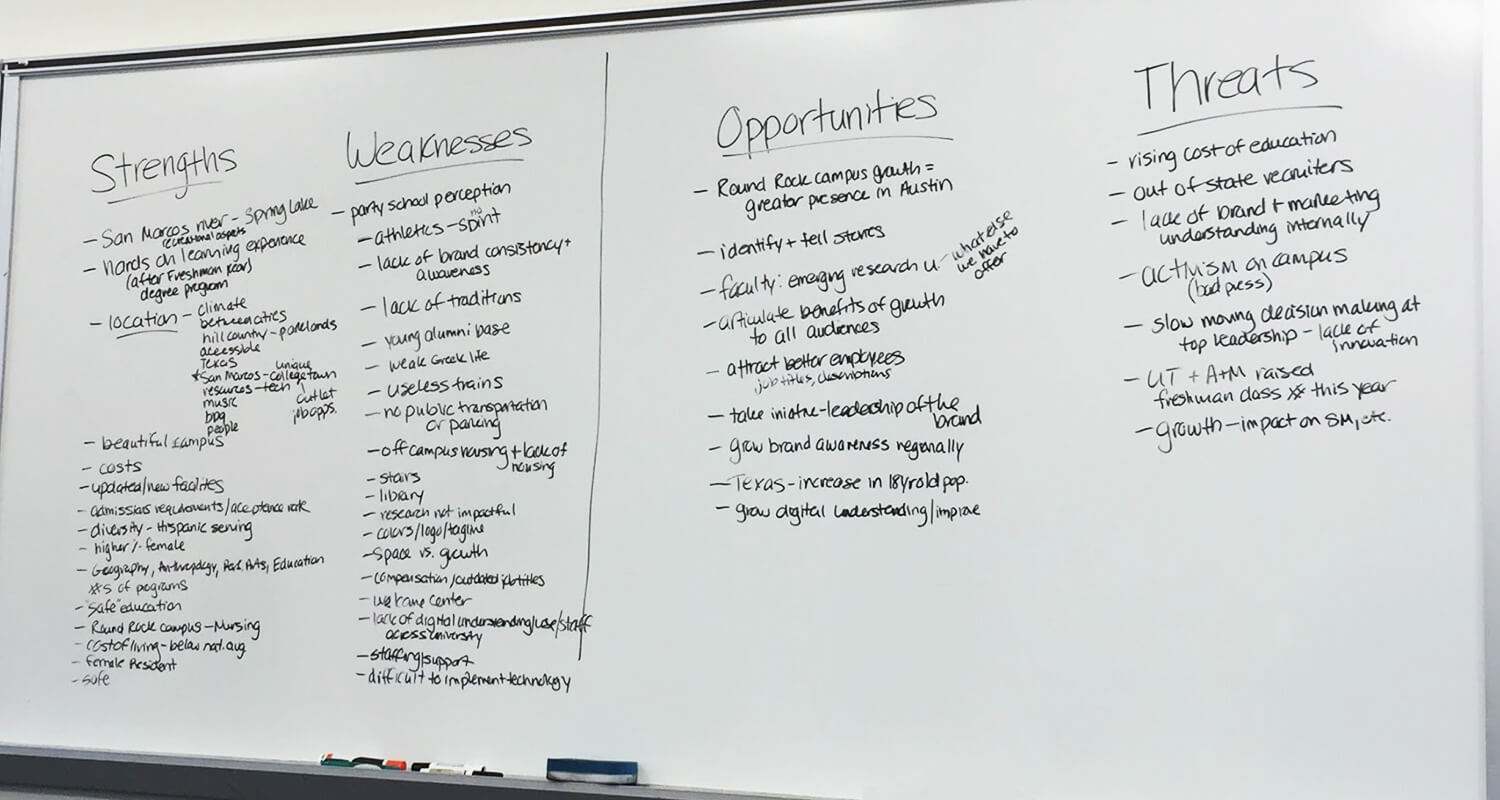 Strengths
- San Marcos river - Spring Lake
recreational aspects
- hands on learning experience
(after Freshman year)
degree program
- location - climate
between cities
hill country - parklands
accessible
Texas
unique
*San Marcos - college town
resources - tech
music
outlet
bbq
job opps.
people
- beautiful campus
- costs
- updated/new facilites
- admissions requirements/acceptance rate
- diversity - Hispanic serving
- higher % female
- Geography, Anthropology, Perf. Arts, Education
#s of programs
- "safe" education
- Round Rock campus - Nursing
- cost of living - below nat. avg
- female President
- safe
Weaknesses
- party school perception
no
- athletics - spirit
- lack of brand consistency +
awareness
- lack of traditions
- young alumni base
- weak Greek life
- useless trains
- no public transportation
or parking
- off campus housing + lack of
housing
- stairs
- library
- research not impactful
- colors/logo/tagline
- space vs. growth
- compensation/outdated job titles
- welcome center
- lack of digital understanding/use/staff
across university
- staffing/support
- difficult to implement technology
Opportunities
- Round Rock campus growth =
greater presence in Austin
- identify + tell stories
- faculty: emerging research u. - what else
we have to
offer
- articulate benefits of growth
to all audiences
- attract better employees
job titles, descriptions
- take iniative - leadership of the
brand
- grow brand awareness regionally
- Texas - increase in 18 yr old pop.
- grow digital understanding/improve
Threats
- rising cost of education
- out of state recruiters
- lack of brand + marketing
understanding internally
- activism on campus
(bad press)
- slow moving decision making at
top leadership - lack of
innovation
- UT + A+M raised
freshman class ## this year
- growth - impact on SM, etc.